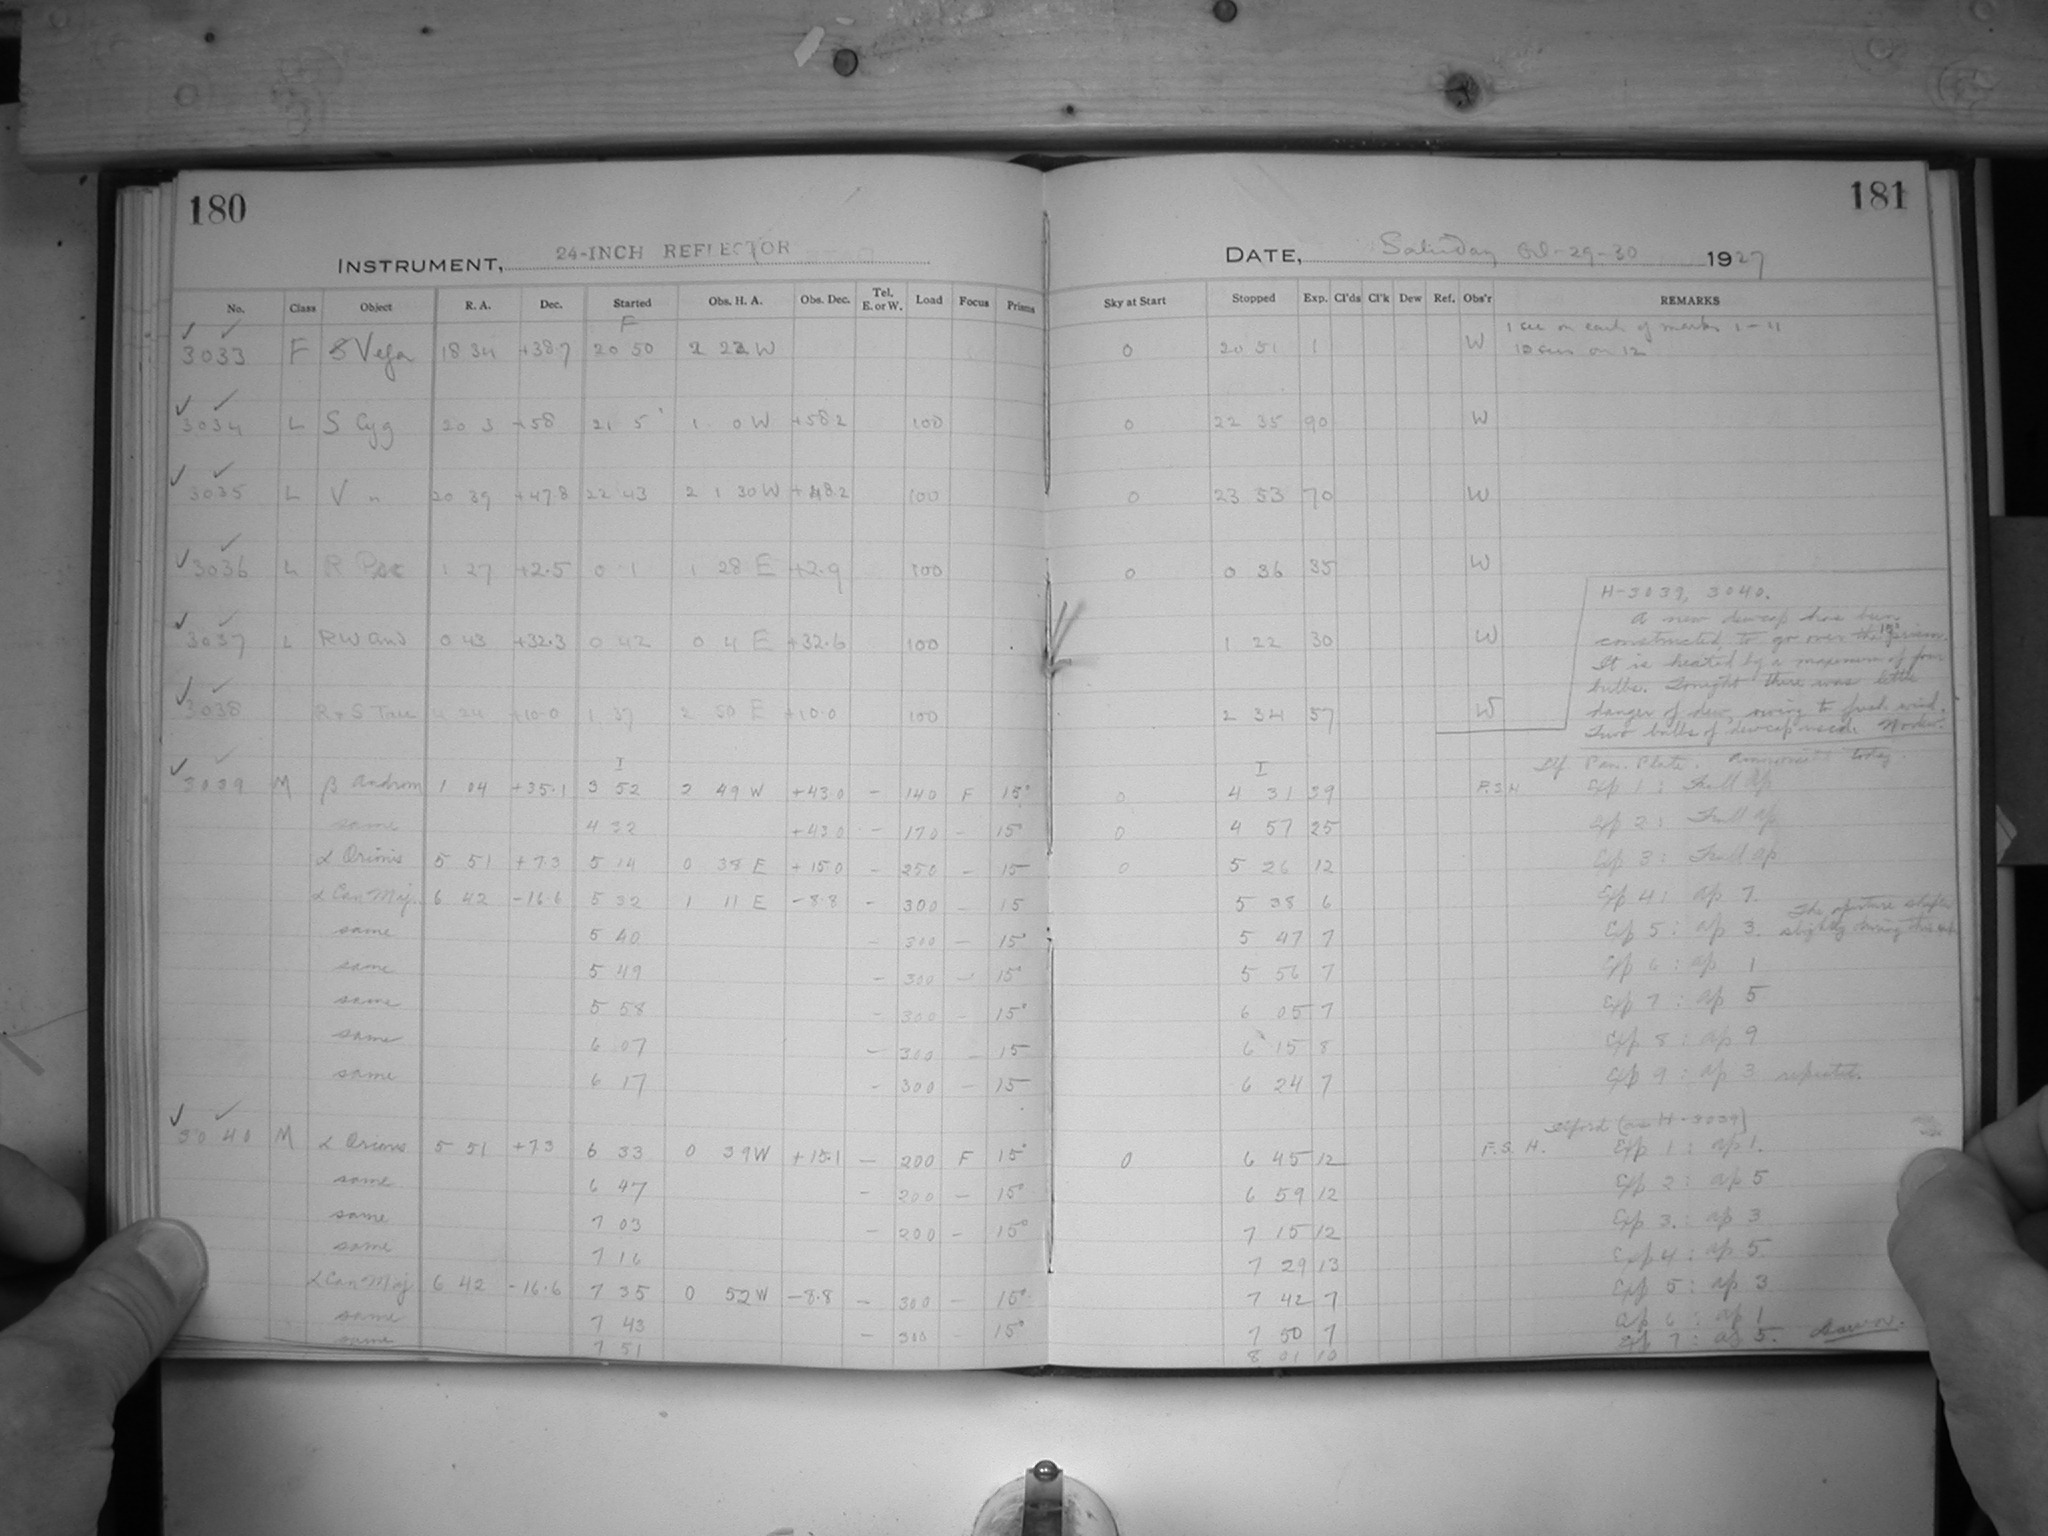 180
INSTRUMENT, 24-INCH REFLECTOR
No. Class Object R. A. Dec. Started Obs. H. A. Obs. Dec. Tel. E. or W. Load Focus Prisms
F
3033 F Vega 18 34 +38.7 20 50 2 22 W
3034 L S Cyg 20 3 +58 21 5 1 0 W +58.2 100
3035 L V " 20 39 +47.8 22 43 2 1 30 W +48.2 100
3036 L R Psc 1 27 +2.5 0 1 1 28 E +2.9 100
3037 L RW And 0 43 +32.3 0 42 0 4 E +32.6 100
3038 R & S Tau 4 24 +10.0 1 37 2 50 E +10.0 100
I
3039 M β Androm 1 04 +35.1 3 52 2 49 W +43.0 - 140 F 15°
same 4 32 +43.0 - 170 - 15°
α Orionis 5 51 +7.3 5 14 0 38 E +15.0 - 250 - 15
α Can Maj. 6 42 -16.6 5 32 1 11 E -8.8 - 300 - 15
same 5 40 - 300 - 15°
same 5 49 - 300 - 15°
same 5 58 - 300 - 15°
same 6 07 - 300 - 15
same 6 17 - 300 - 15
3040 M α Orionis 5 51 +7.3 6 33 0 39 W +15.1 - 200 F 15°
same 6 47 - 200 - 15°
same 7 03 - 200 - 15°
same 7 16
α Can Maj 6 42 -16.6 7 35 0 52 W -8.8 - 300 - 15°
same 7 43 - 300 - 15°
same 7 51
181
DATE, Saturday Oct-29-30 1927
Sky at Start Stopped Exp. Cl'ds Cl'k Dew Ref. Obs'r REMARKS
0 20 51 1 W 1 sec on each of marks 1-11
10 secs on 12
0 22 35 90 W
0 23 53 70 W
0 0 36 35 W
1 22 30 W
2 34 57 W
H-3039, 3040.
A new dewcap has been
constructed, to go over the 15° prism.
It is heated by a maximum of four
bulbs. Tonight there was little
danger of dew, owing to fresh wind.
Two bulbs of dewcap used. No dew.
Ilf. Pan. Plate. Ammoniated today.
I
0 4 31 39 F.S.H Exp 1: Full ap
0 4 57 25 Exp 2: Full ap
0 5 26 12 Exp 3: Full ap
5 38 6 Exp 4: ap 7.
5 47 7 Exp 5: ap 3. The aperture slipped slightly during this exp.
5 56 7 Exp 6: ap 1
6 05 7 Exp 7: ap 5
6 15 8 Exp 8: ap 9
6 24 7 Exp 9: ap 3 repeated.
Ilford (as H-3039)
0 6 45 12 F.S.H. Exp 1: ap 1.
6 59 12 Exp 2: ap 5
7 15 12 Exp 3: ap 3
7 29 13 Exp 4: ap 5.
7 42 7 Exp 5: ap 3
7 50 7 Exp 6: ap 1
8 01 10 Exp 7: ap 5. Dawn.